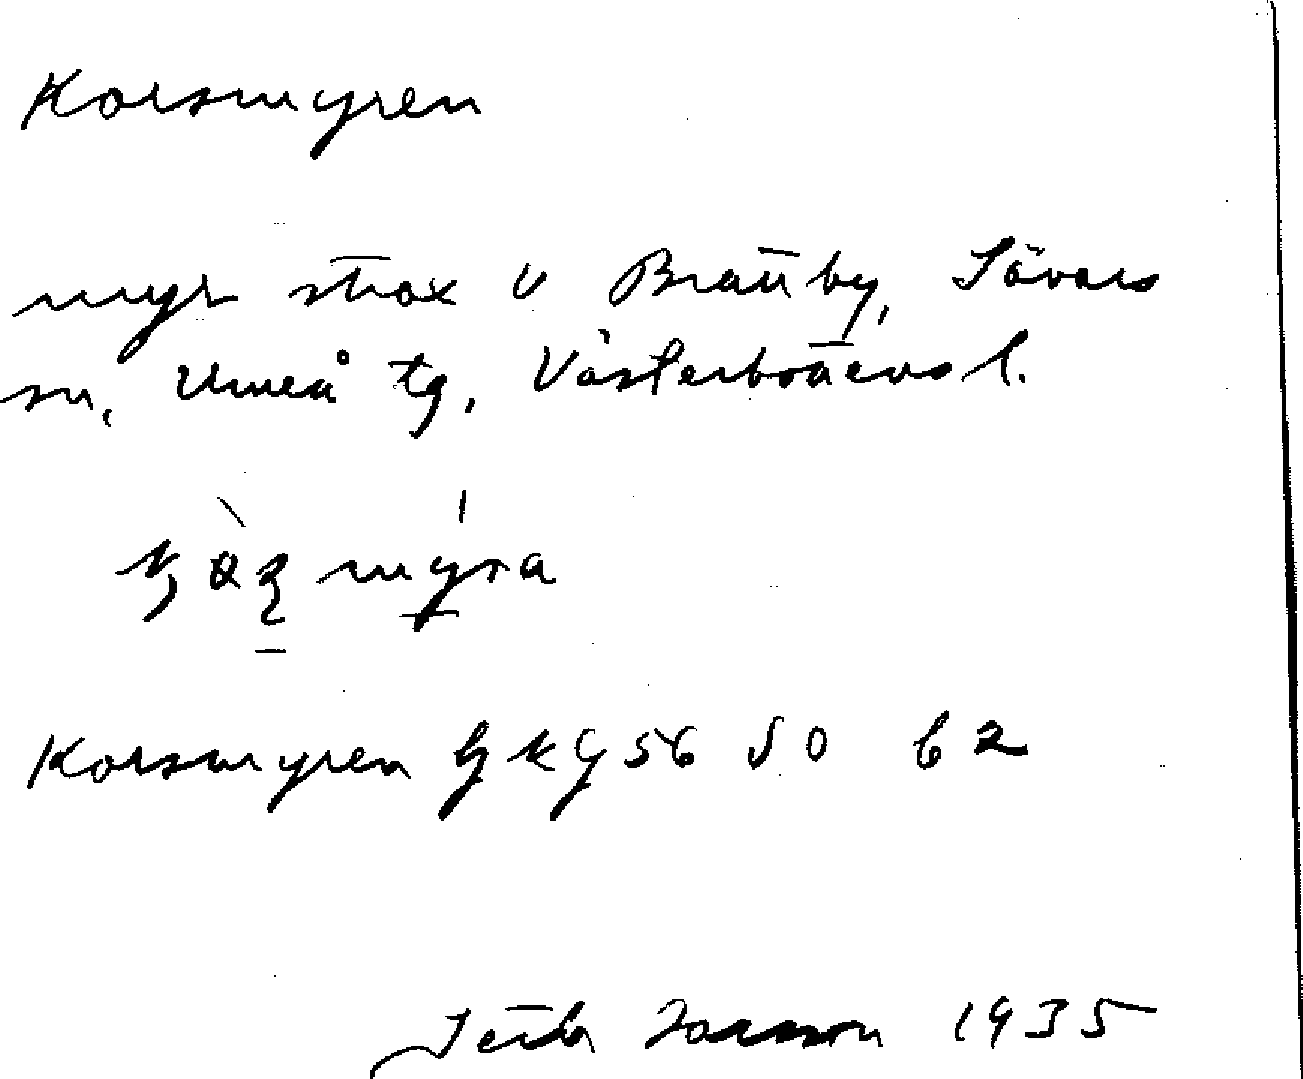 Korsmyren
myr strax v Brattby, Sävars
sn, Umeå tg, Västerbottens l.
mýra
Korsmyren GK 956 SO b2
Jonsson 1935